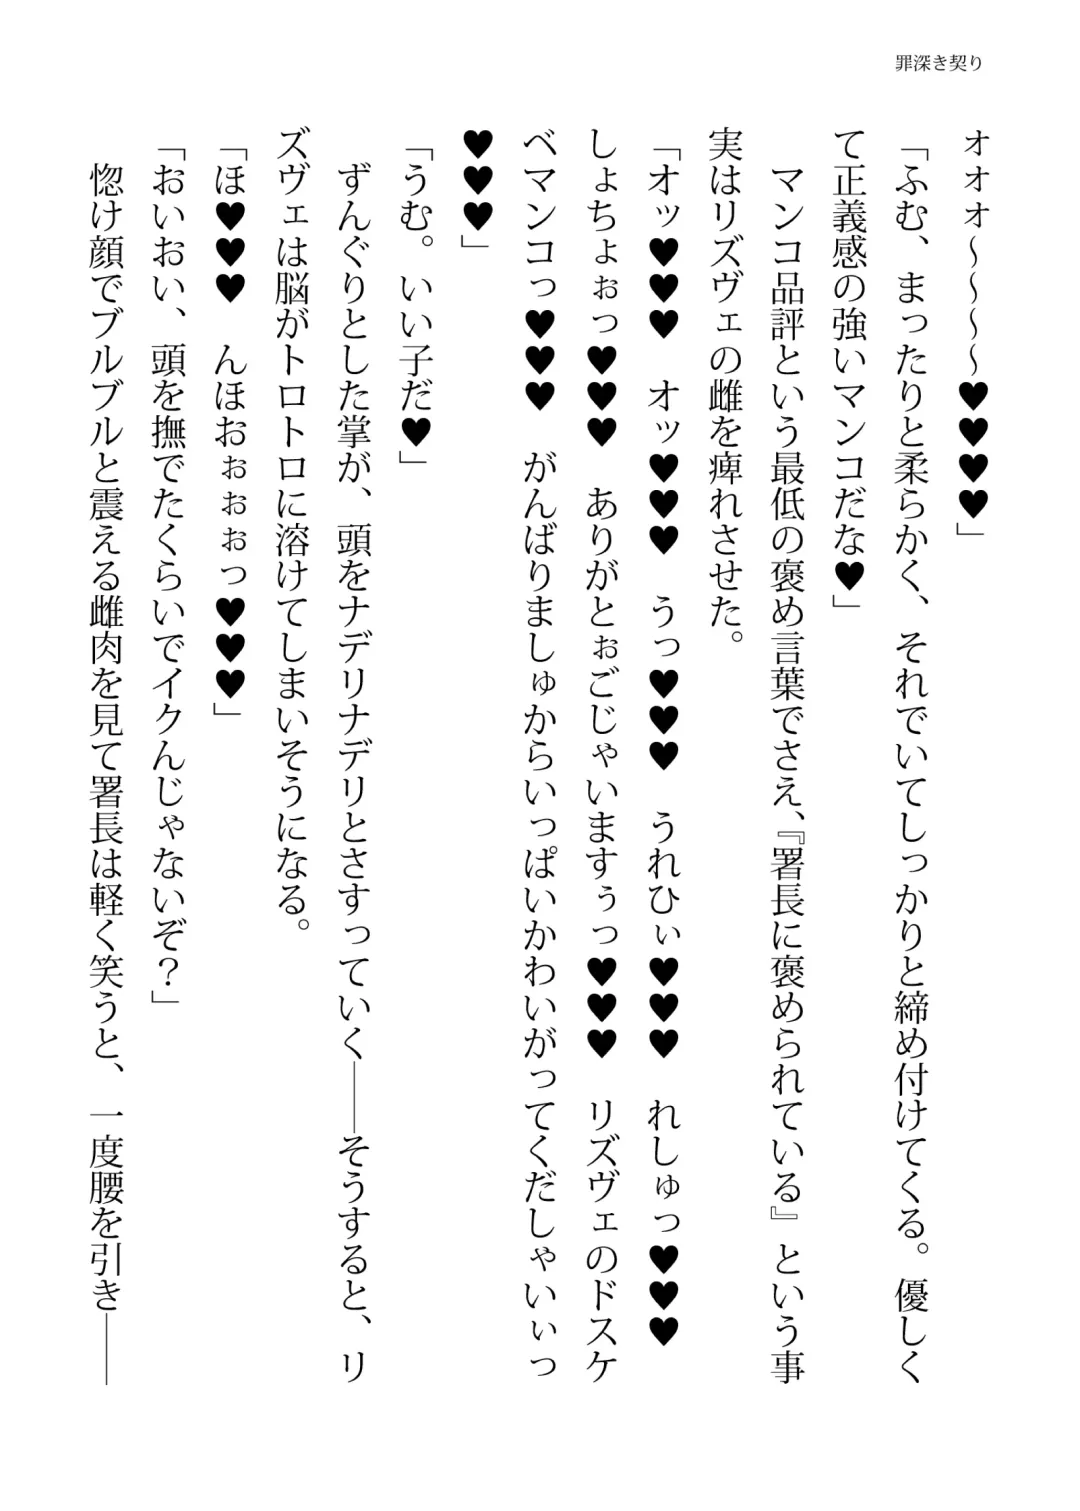 罪深き契り
ォォォ～～～～♥♥♥♥」
「ふむ、まったりと柔らかく、それでいてしっかりと締め付けてくる。優しく
て正義感の強いマンコだな♥」
　マンコ品評という最低の褒め言葉でさえ、『署長に褒められている』という事
実はリズヴェの雌を痺れさせた。
「オッ♥♥♥　オッ♥♥♥　うっ♥♥♥　うれひぃ♥♥♥　れしゅっ♥♥♥
しょちょぉっ♥♥♥　ありがとぉごじゃいますぅっ♥♥♥　リズヴェのドスケ
ベマンコっ♥♥♥　がんばりましゅからいっぱいかわいがってくだしゃいぃっ
♥♥♥」
「うむ。いい子だ♥」
　ずんぐりとした掌が、頭をナデリナデリとさすっていく――そうすると、リ
ズヴェは脳がトロトロに溶けてしまいそうになる。
「ほ♥♥♥　んほおぉぉぉっ♥♥♥」
「おいおい、頭を撫でたくらいでイクんじゃないぞ？」
　惚け顔でブルブルと震える雌肉を見て署長は軽く笑うと、一度腰を引き――